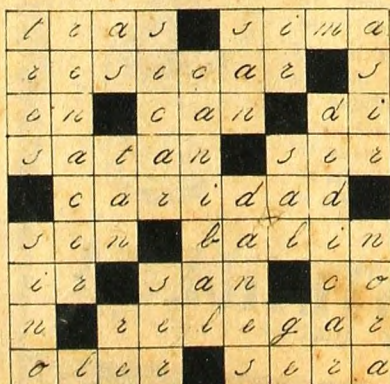 tras sima
resecar s
en can di
satan ser
caridad
sen balin
ir san co
n relegar
oler sera